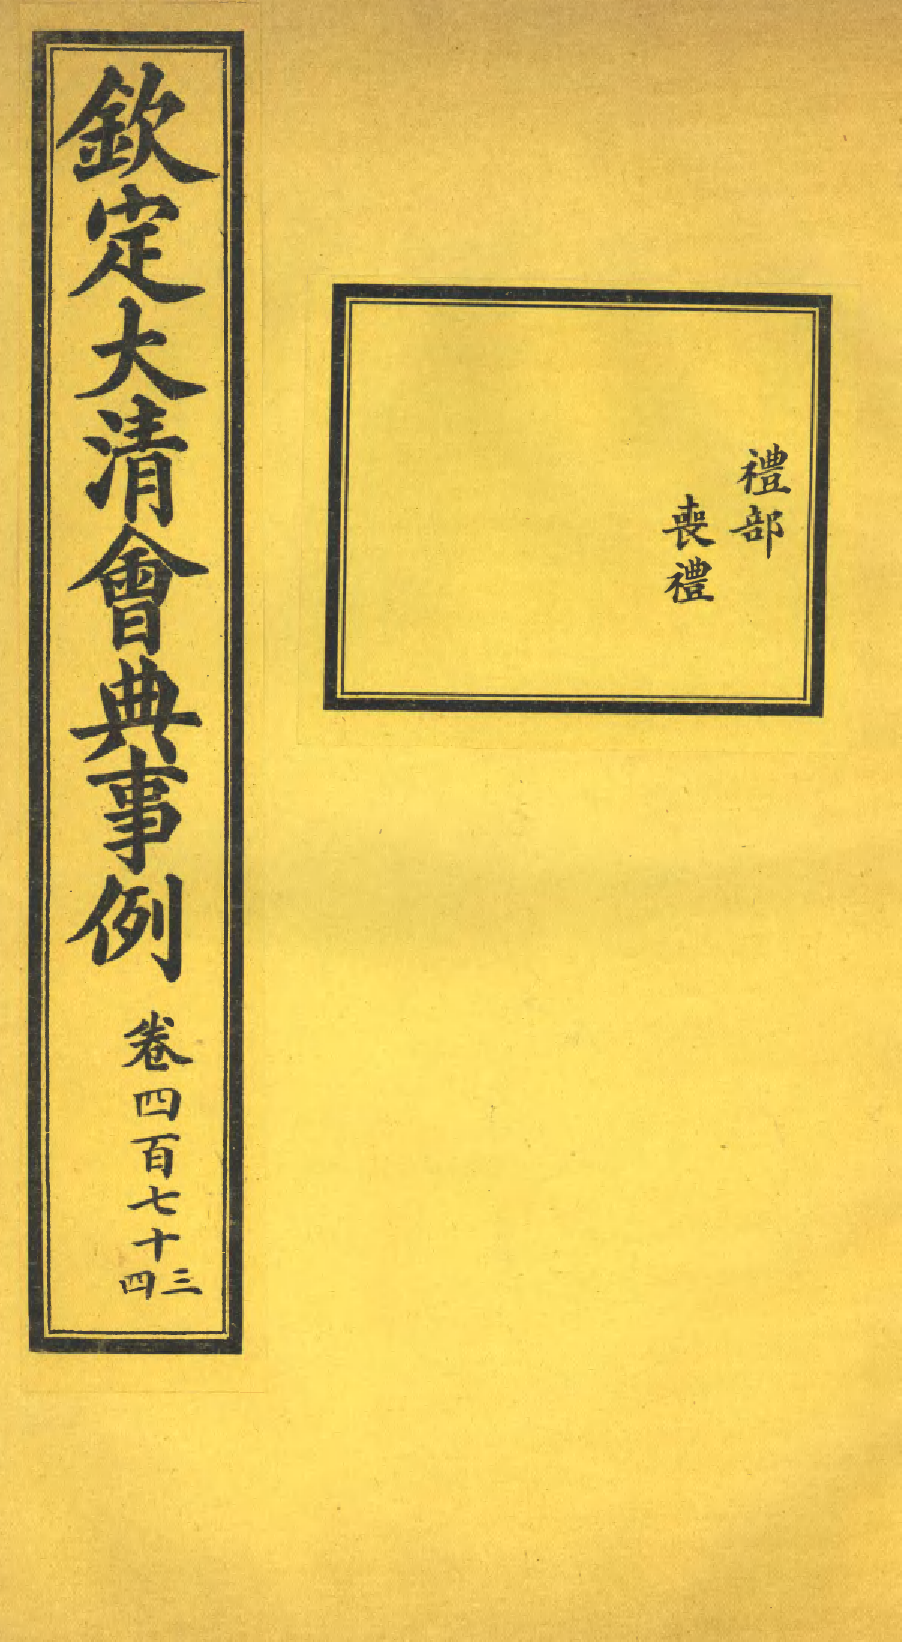 禮部
喪禮
欽定大清會典事例 卷四百七十三四